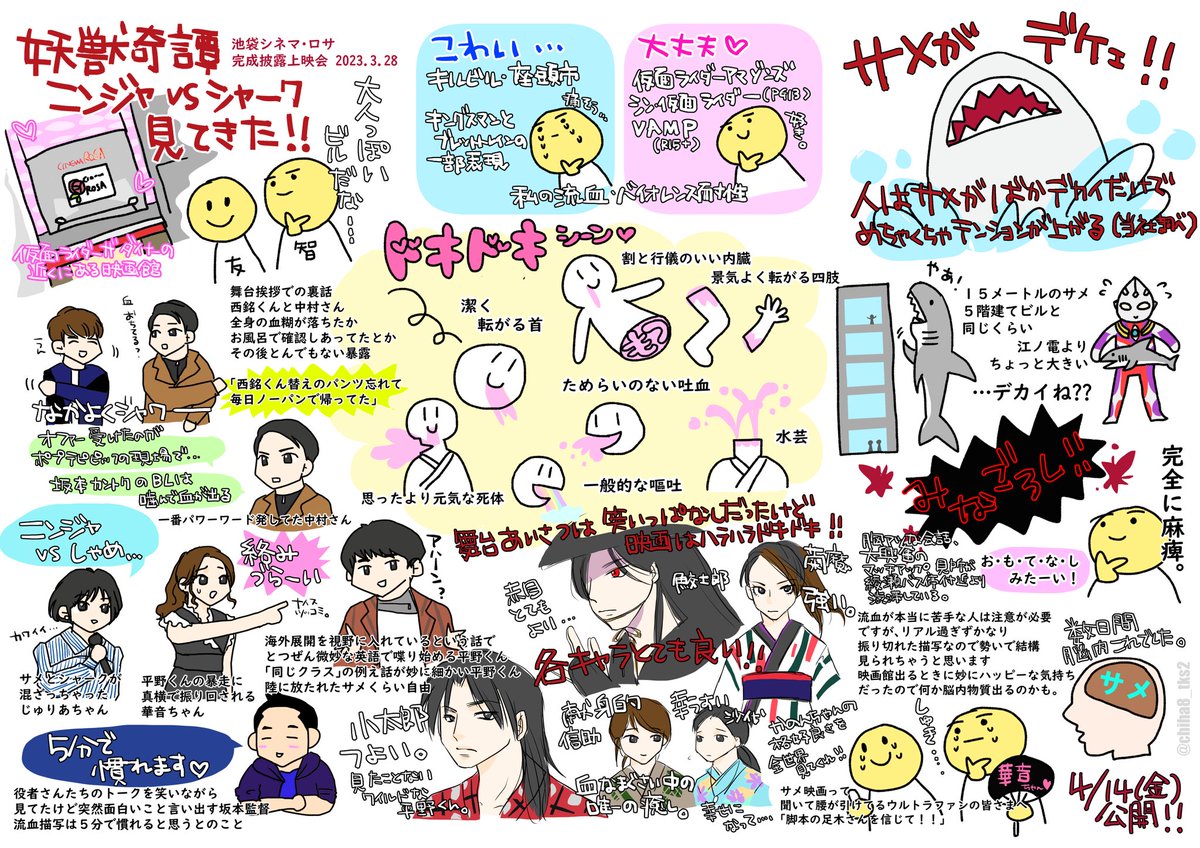 妖獣奇譚
ニンジャVSシャーク
見てきた!!
池袋シネマ・ロサ
完成披露上映会 2023.3.28
大人っぽい
ビルだな…
CINEMA ROSA
ROSA
仮面ライダーガヴァイナーの
近くにある映画館
友
智
こわい…
キルビル・座頭市
キングスマンと
ブレットトレインの
一部表現
痛そう…
大丈夫♡
仮面ライダーアマゾンズ
シン・仮面ライダー(PG12)
VAMP
(R15+)
好き。
私の流血・バイオレンス耐性
サメが デケェ!!
人はサメがばかデカイだけで
めちゃくちゃテンションが上がる(当社調べ)
ドキドキシーン♡
潔く
転がる首
割と行儀のいい内臓
景気よく転がる四肢
ためらいのない吐血
水芸
思ったより元気な死体
一般的な嘔吐
舞台挨拶での裏話
西銘くんと中村さん
全身の血糊が落ちたか
お風呂で確認しあってたとか
その後とんでもない暴露
「西銘くん替えのパンツ忘れて
毎日ノーパンで帰ってた」
なかよくジャワ
オファー受けたのが
ポプテピピックの現場で…
坂本カントクのBLは
噛んで血が出る
一番パワーワード発してた中村さん
やぁ!
15メートルのサメ
5階建てビルと
同じくらい
江ノ電より
ちょっと大きい
…デカイね??
みなごろし!!
完全に麻痺。
お・も・て・な・し
みたーい!
流血が本当に苦手な人は注意が必要
ですが、リアル過ぎずかなり
振り切れた描写なので勢いで結構
見られちゃうと思います
映画館出るときに妙にハッピーな気持ち
だったので何か脳内物質出るのかも。
数日間
脳内これでした。
サメ
ニンジャ
VS しゃめ…
カワイイ…
サメとシャークが
混ざっちゃった
じゅりあちゃん
絡み
づらーい
ナイス
ツッコミ。
平野くんの暴走に
真横で振り回される
華音ちゃん
アハーン?
海外展開を視野に入れているという話で
とつぜん微妙な英語で喋り始める平野くん
「同じクラス」の例え話が妙に細かい平野くん
陸に放たれたサメくらい自由
舞台あいさつは笑いっぱなしだったけど
映画はハラハラドキドキ!!
赤目
とても
よい…
強い。
各キャラとても良い!!
小太郎
つよい。
見たことない
ワイルドな
平野くん。
献身的
信助
血なまぐさい中の
唯一の癒し。
幸せに
なって…
かのんちゃんの
格好良さを
全世界
見てくれ!!
5分で
慣れます♡
役者さんたちのトークを笑いながら
見てたけど突然面白いこと言い出す坂本監督
流血描写は5分で慣れると思うとのこと
しゅき…
華音
ちゃん♡
サメ映画って
聞いて腰が引けてるウルトラファンの皆さまへ
「脚本の足木さんを信じて!!」
4/14(金)
公開!!
@chiha8_tks2